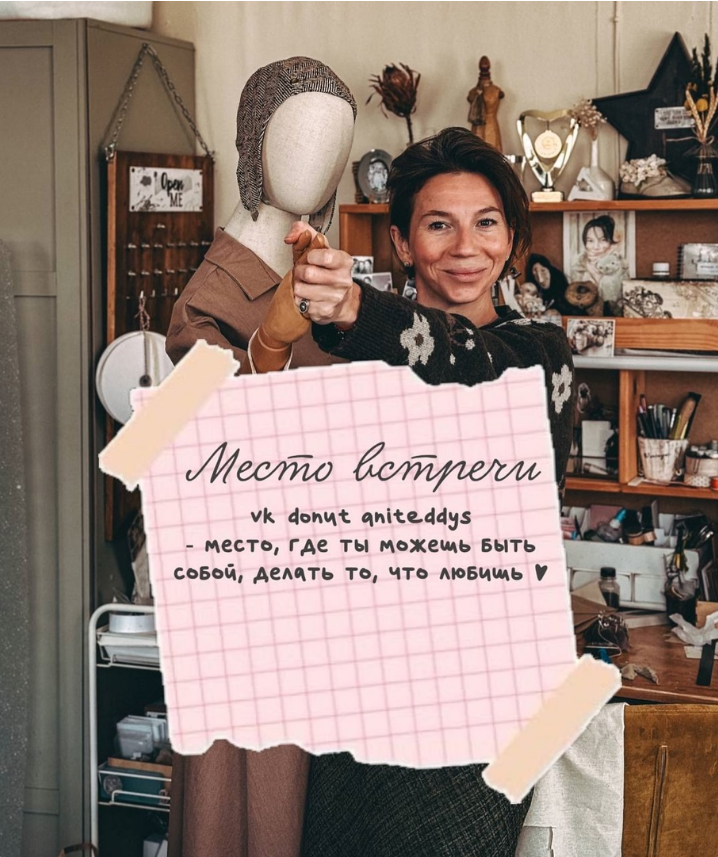 Open
ME
Место встречи
vk donut qniteddys
- место, где ты можешь быть
собой, делать то, что любишь ♥